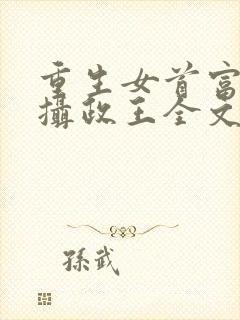 重生女首富
攝政王全文
孫武